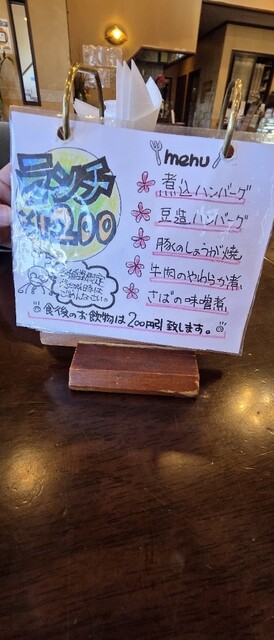 ランチ
¥1,200
menu
煮込ハンバーグ
豆腐ハンバーグ
豚のしょうが焼
牛肉のやわらか煮
さばの味噌煮
ごめんなさい。
食後のお飲物は200円引致します。